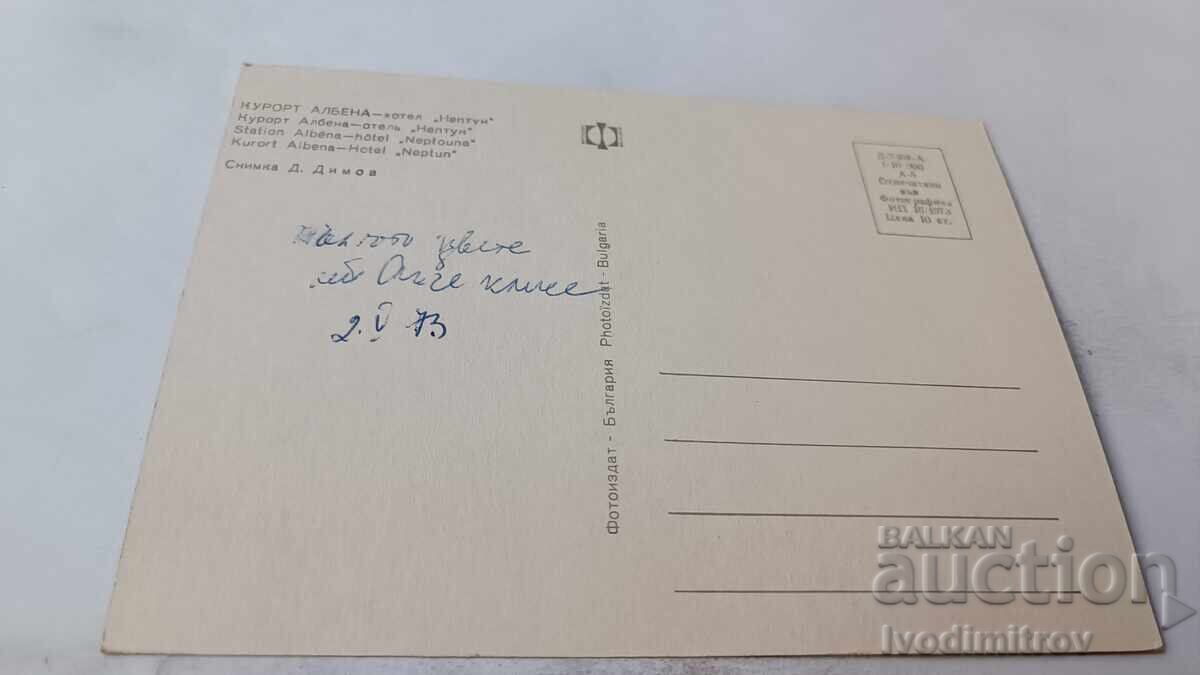 КУРОРТ АЛБЕНА—хотел „Нептун“
Курорт Албена—отель „Нептун“
Station Albéna—hôtel „Neptoune“
Kurort Albena—Hotel „Neptun“
Снимка Д. Димов
цвете
2.V 73
Фотоиздат - България Photoizdat - Bulgaria
А-5
Отпечатана
във
Фотографика
Цена 10 ст.
BALKAN
auction
Ivodimitrov